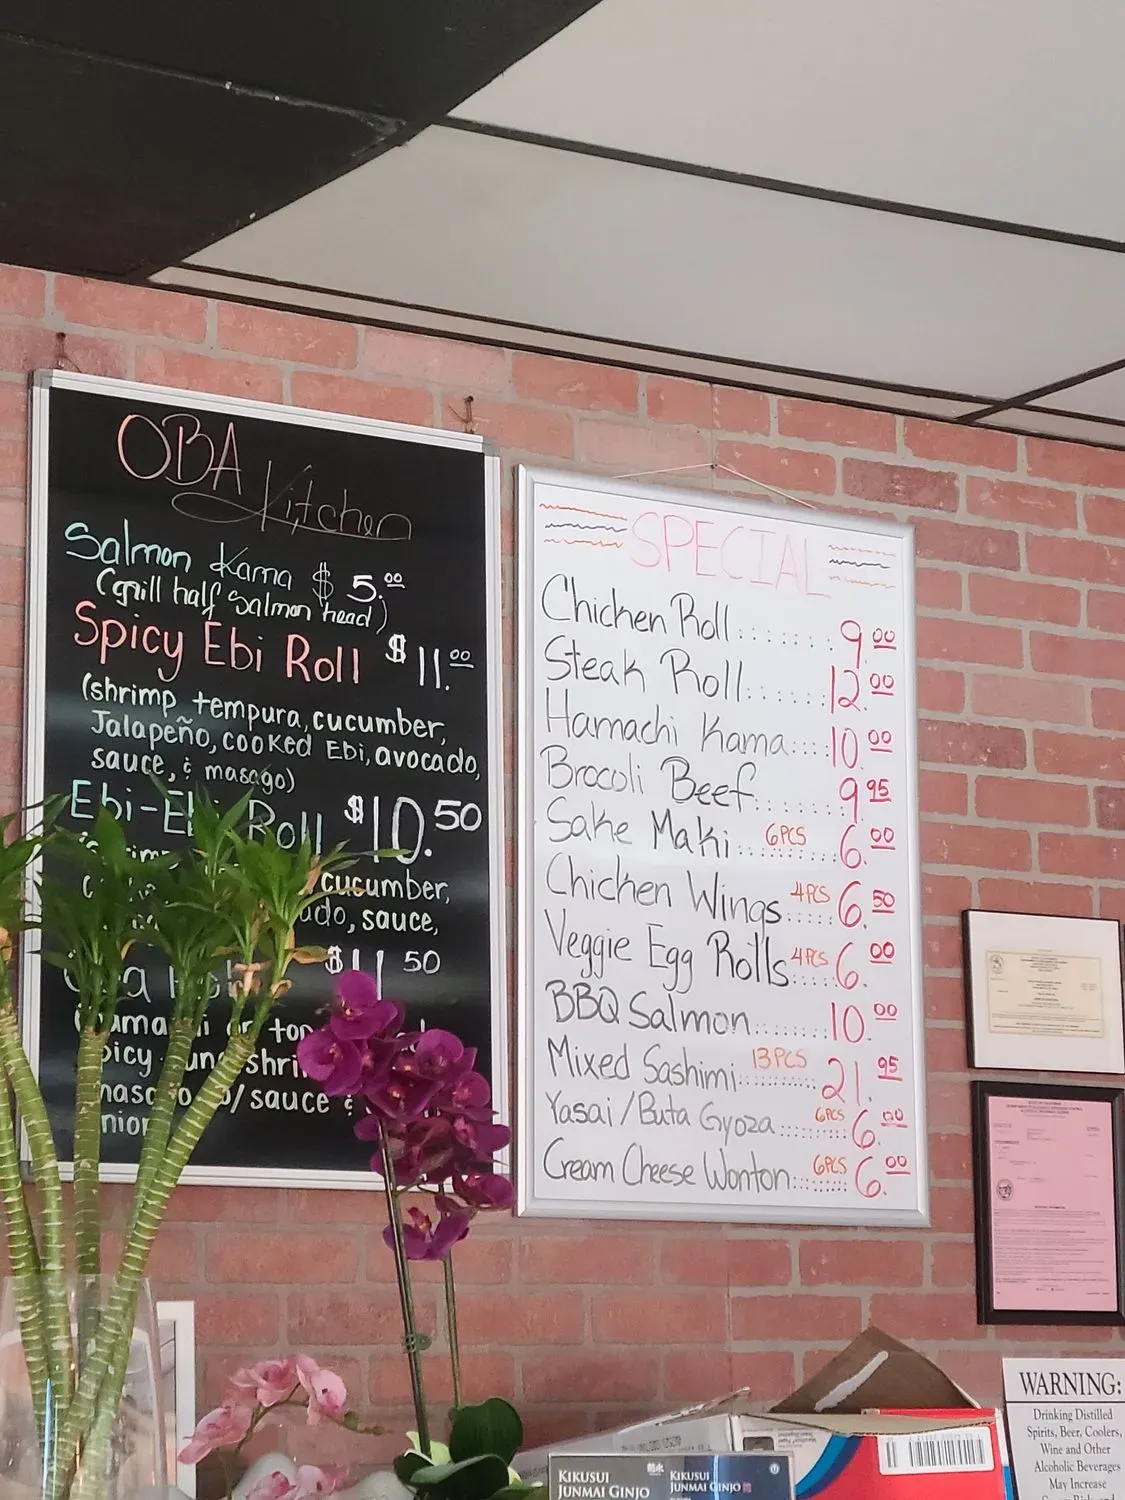 OBA Kitchen
Salmon Kama $5.00
(grill half salmon head)
Spicy Ebi Roll $11.00
(shrimp tempura, cucumber,
Jalapeño, cooked Ebi, avocado,
sauce, & masago)
Ebi-Ebi Roll $10.50
cucumber,
sauce,
$11.50
or
w/ sauce &
SPECIAL
Chicken Roll........9.00
Steak Roll......12.00
Hamachi Kama....10.00
Brocoli Beef.......9.95
Sake Maki 6PCS 6.00
Chicken Wings 4PCS 6.50
Veggie Egg Rolls 4PCS 6.00
BBQ Salmon........10.00
Mixed Sashimi 13PCS 21.95
Yasai/Buta Gyoza 6PCS 6.00
Cream Cheese Wonton 6PCS 6.00
WARNING:
Drinking Distilled
Spirits, Beer, Coolers,
Wine and Other
Alcoholic Beverages
May Increase
KIKUSUI
JUNMAI GINJO
KIKUSUI
JUNMAI GINJO